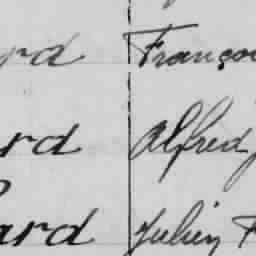 rd Françoi
rd Alfred
ard Julien F